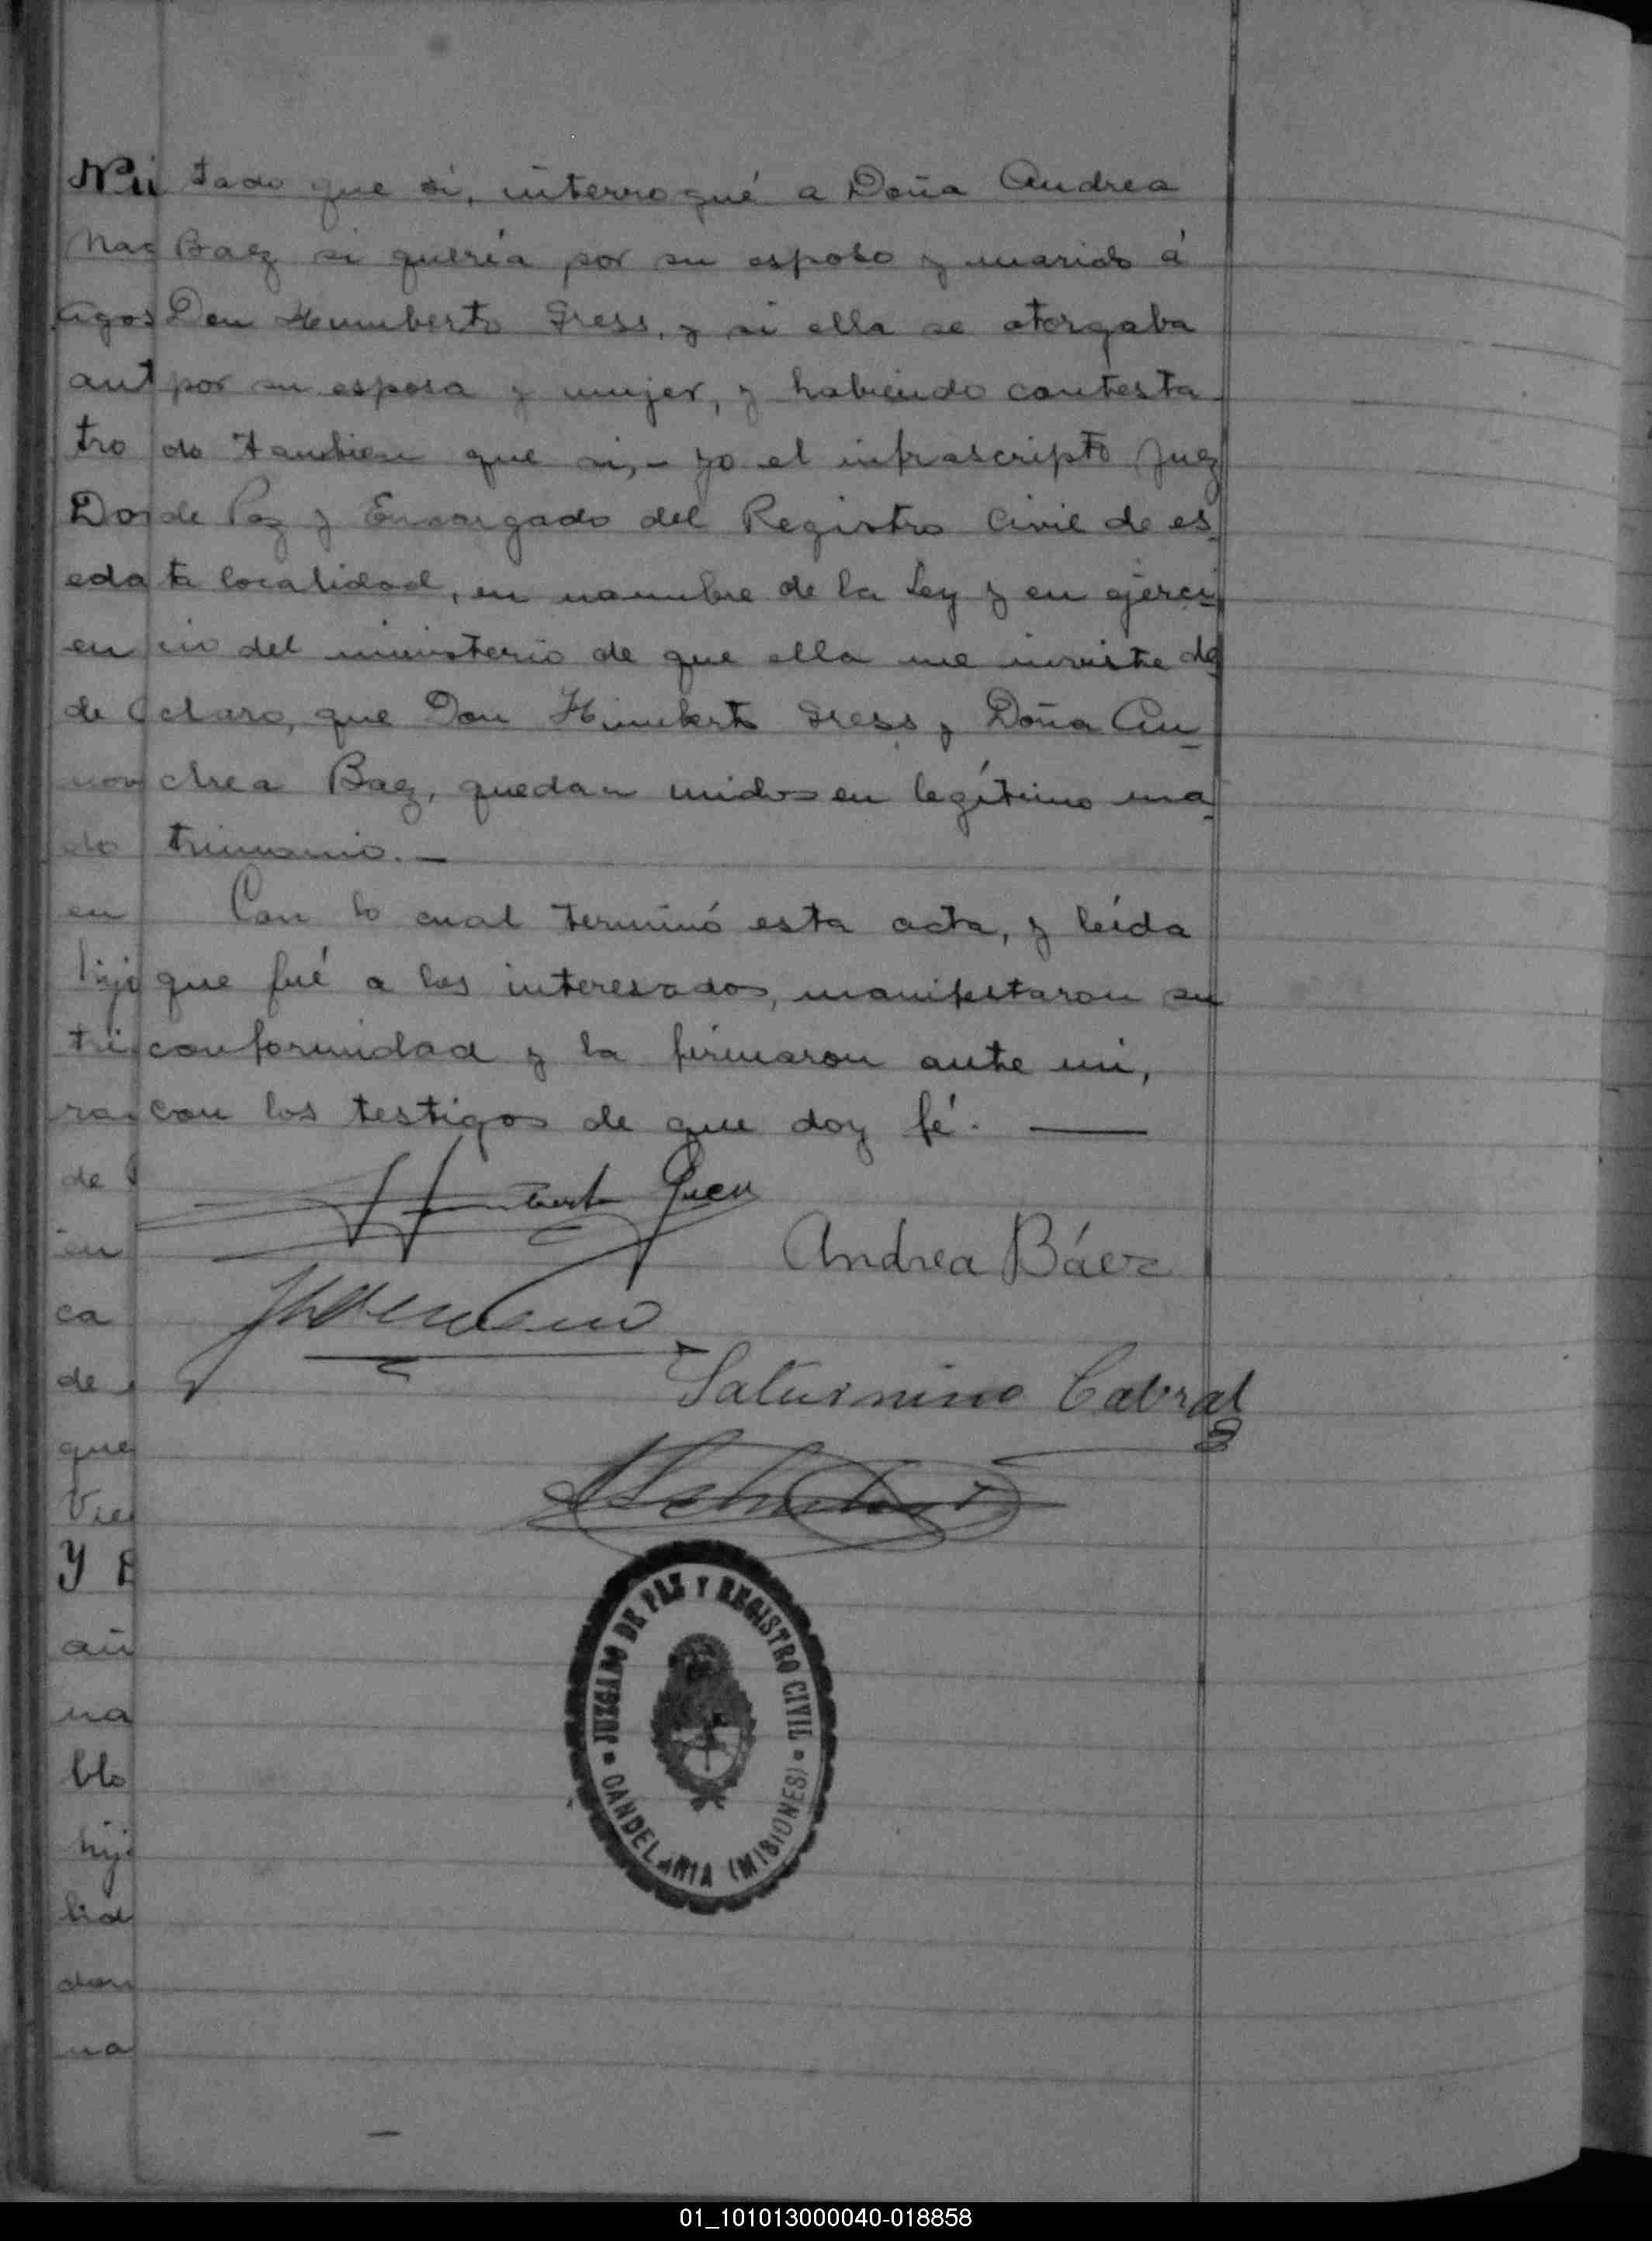 tado que si, interrogué a Doña Andrea
Baez si quería por su esposo y marido á
Don Humberto Gress, y si ella se otorgaba
por su esposa y mujer, y habiendo contesta
do tambien que si,- yo el infrascripto Juez
de Paz y Encargado del Registro Civil de es
ta localidad, en nombre de la Ley y en ejerci
cio del ministerio de que ella me inviste de
claro, que Don Humberto Gress y Doña An
drea Baez, quedan unidos en legítimo ma
trimonio.-
Con lo cual terminó esta acta, y leída
que fué a los interesados, manifestaron su
conformidad y la firmaron ante mi,
con los testigos de que doy fé.
Andrea Báez
Saturnino Cabral
JUZGADO DE PAZ Y REGISTRO CIVIL
CANDELARIA (MISIONES)
Nú
Nac
agos
ant
tro
Do
eda
en
de
nov
do
en
hijo
tri
ra
de
en
ca
de
que
Vie
y
añ
na
blo
hij
lid
don
na
01_101013000040-018858